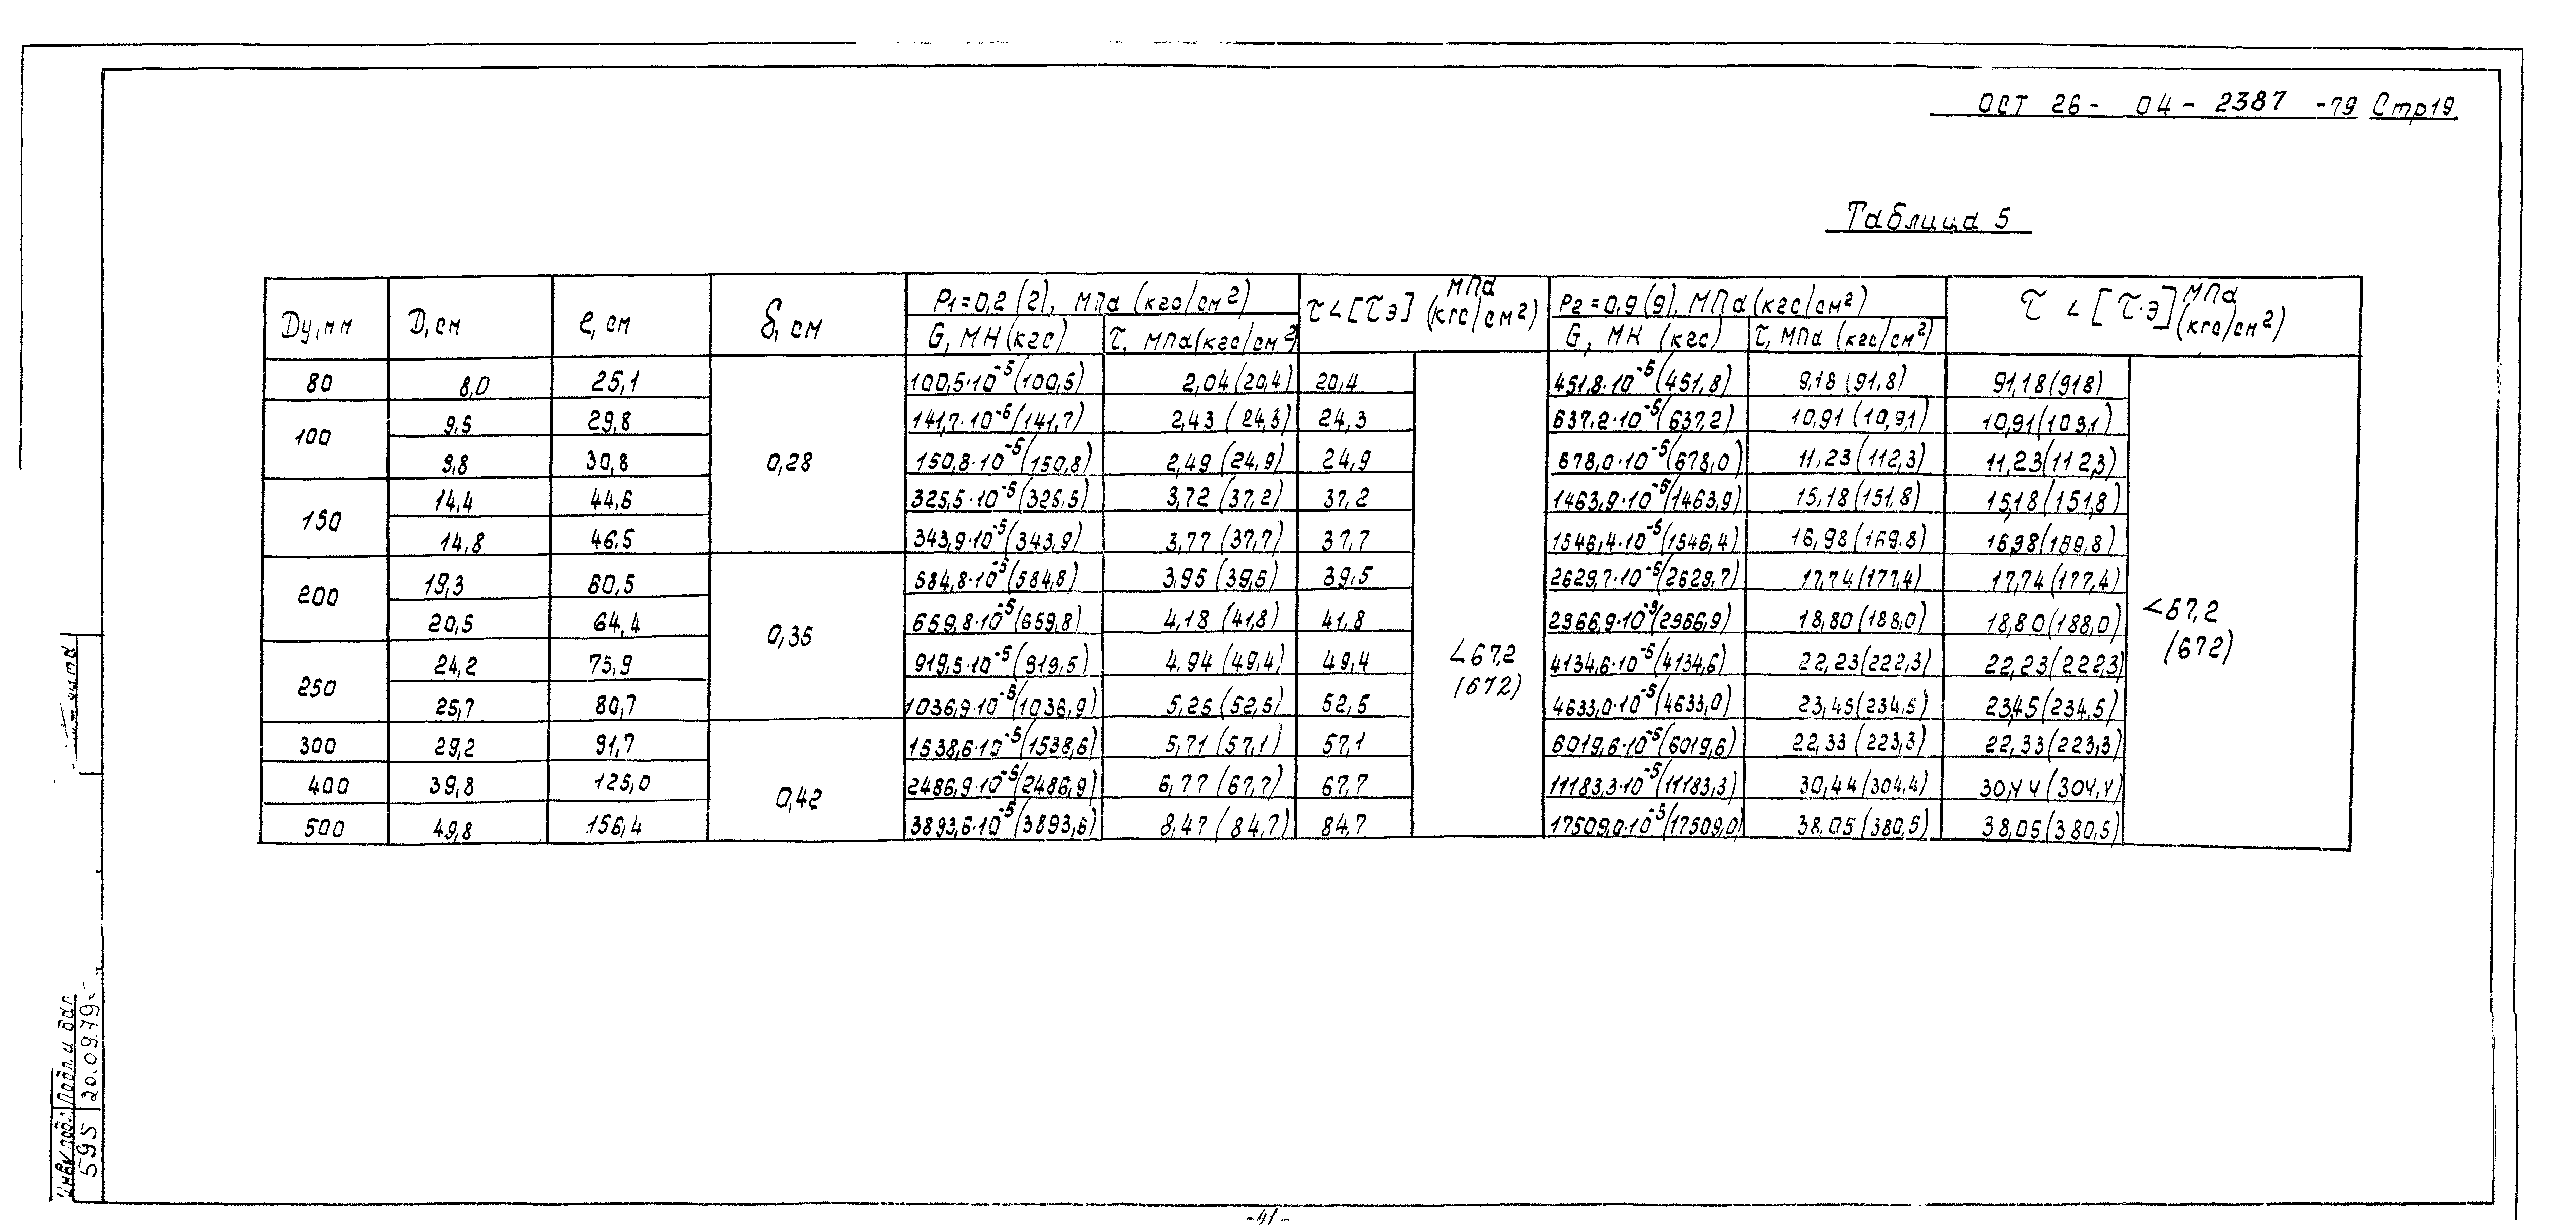 ОСТ 26- 04- 2387 -79 Стр19
Таблица 5
Dy, мм D, см ℓ, см δ, см P1=0,2 (2), МПа (кгс/см²) G, МН (кгс) τ, МПа(кгс/см²) τ<[τэ] МПа (кгс/см²) P2=0,9 (9), МПа(кгс/см²) G, МН (кгс) τ, МПа (кгс/см²) τ <[τ.э] МПа (кгс/см²)
80 8,0 25,1 0,28 100,5·10⁻⁵(100,5) 2,04(20,4) 20,4 <67,2 (672) 451,8·10⁻⁵(451,8) 9,18(91,8) 91,18(918) <67,2 (672)
100 9,5 29,8 141,7·10⁻⁶(141,7) 2,43 (24,3) 24,3 637,2·10⁻⁵(637,2) 10,91 (10,91) 10,91(109,1)
9,8 30,8 150,8·10⁻⁵(150,8) 2,49 (24,9) 24,9 678,0·10⁻⁵(678,0) 11,23(112,3) 11,23(112,3)
150 14,4 44,6 325,5·10⁻⁵(325,5) 3,72 (37,2) 37,2 1463,9·10⁻⁵(1463,9) 15,18(151,8) 15,18(151,8)
14,8 46,5 343,9·10⁻⁵(343,9) 3,77 (37,7) 37,7 1546,4·10⁻⁵(1546,4) 16,98(169.8) 16,98(169,8)
200 19,3 60,5 0,35 584,8·10⁻⁵(584,8) 3,95 (39,5) 39,5 2629,7·10⁻⁵(2629,7) 17,74(177,4) 17,74(177,4)
20,5 64,4 659,8·10⁻⁵(659,8) 4,18 (41,8) 41,8 2966,9·10⁻⁵(2966,9) 18,80(188,0) 18,80(188,0)
250 24,2 75,9 919,5·10⁻⁵(919,5) 4,94 (49,4) 49,4 4134,6·10⁻⁵(4134,6) 22,23(222,3) 22,23(222,3)
25,7 80,7 1036,9·10⁻⁵(1036,9) 5,25 (52,5) 52,5 4633,0·10⁻⁵(4633,0) 23,45(234,5) 23,45(234,5)
300 29,2 91,7 0,42 1538,6·10⁻⁵(1538,6) 5,71 (57,1) 57,1 6019,6·10⁻⁵(6019,6) 22,33 (223,3) 22,33(223,3)
400 39,8 125,0 2486,9·10⁻⁵(2486,9) 6,77 (67,7) 67,7 11183,3·10⁻⁵(11183,3) 30,44(304,4) 30,44(304,4)
500 49,8 156,4 3893,6·10⁻⁵(3893,6) 8,47 (84,7) 84,7 17509,0·10⁻⁵(17509,0) 38,05(380,5) 38,05(380,5)
Инв№подл. Подп. и дат
595 20.09.79
-41-